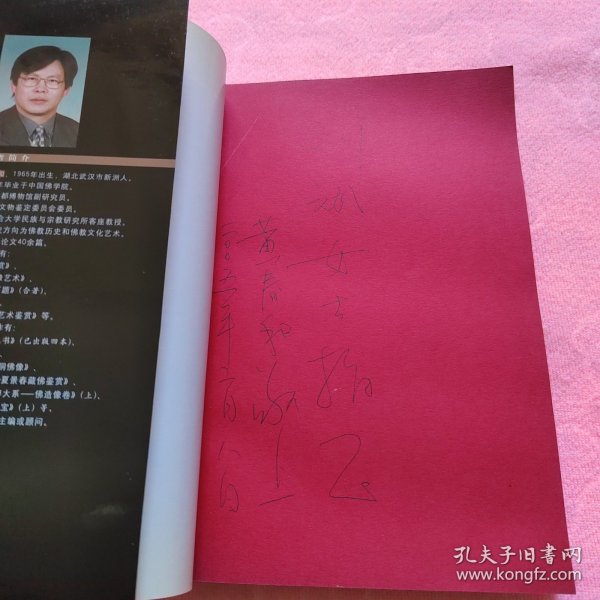 者简介
1965年出生，湖北武汉市新洲人。
年毕业于中国佛学院。
都博物馆副研究员。
文物鉴定委员会委员。
合大学民族与宗教研究所客座教授。
究方向为佛教历史和佛教文化艺术。
论文40余篇。
有：
赏》、
像艺术》、
题》（合著）、
艺术鉴赏》等。
作有：
书》（已出版四本）、
铜佛像》、
夏景春藏佛鉴赏》、
大系——佛造像卷》（上）、
宝》（上）等，
主编或顾问。
女士指正
黄春和敬上
年六月八日
孔夫子旧书网
www.kongfz.com